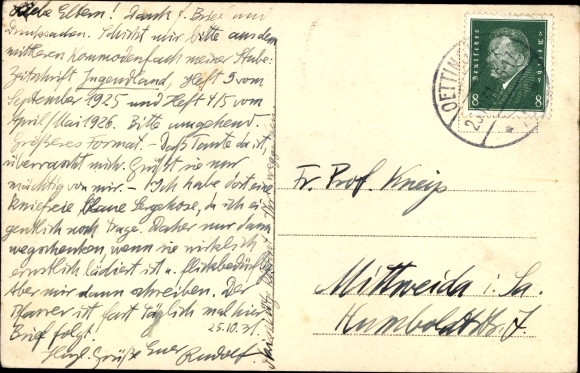 Liebe Eltern! Dank f. Brief und
Drucksachen. Schickt mir bitte aus dem
mittleren Kommodenfach meiner Stube:
Zeitschrift Jugendland, Heft 9 vom
September 1925 und Heft 4/5 vom
April/Mai 1926. Bitte umgehend.
Größeres Format. – Daß Tante da ist,
überrascht mich. Grüßt sie nur
mächtig von mir. – Ich habe dort eine
kniefreie blaue Sergehose, da ich ei-
gentlich noch trage. Daher nur dann
wegschenken, wenn sie wirklich
ernstlich lädiert ist u. flickbedürftig.
Aber mir dann schreiben. Der
Pfarrer ist fast täglich mal hier.
Brief folgt. 25.10.31.
Herzl. Grüße Euer Rudolf.
Deutsches Reich
8 8
OETTIN
Fr. Prof. Kneip
Mittweida i. Sa.
Humboldtstr. 7